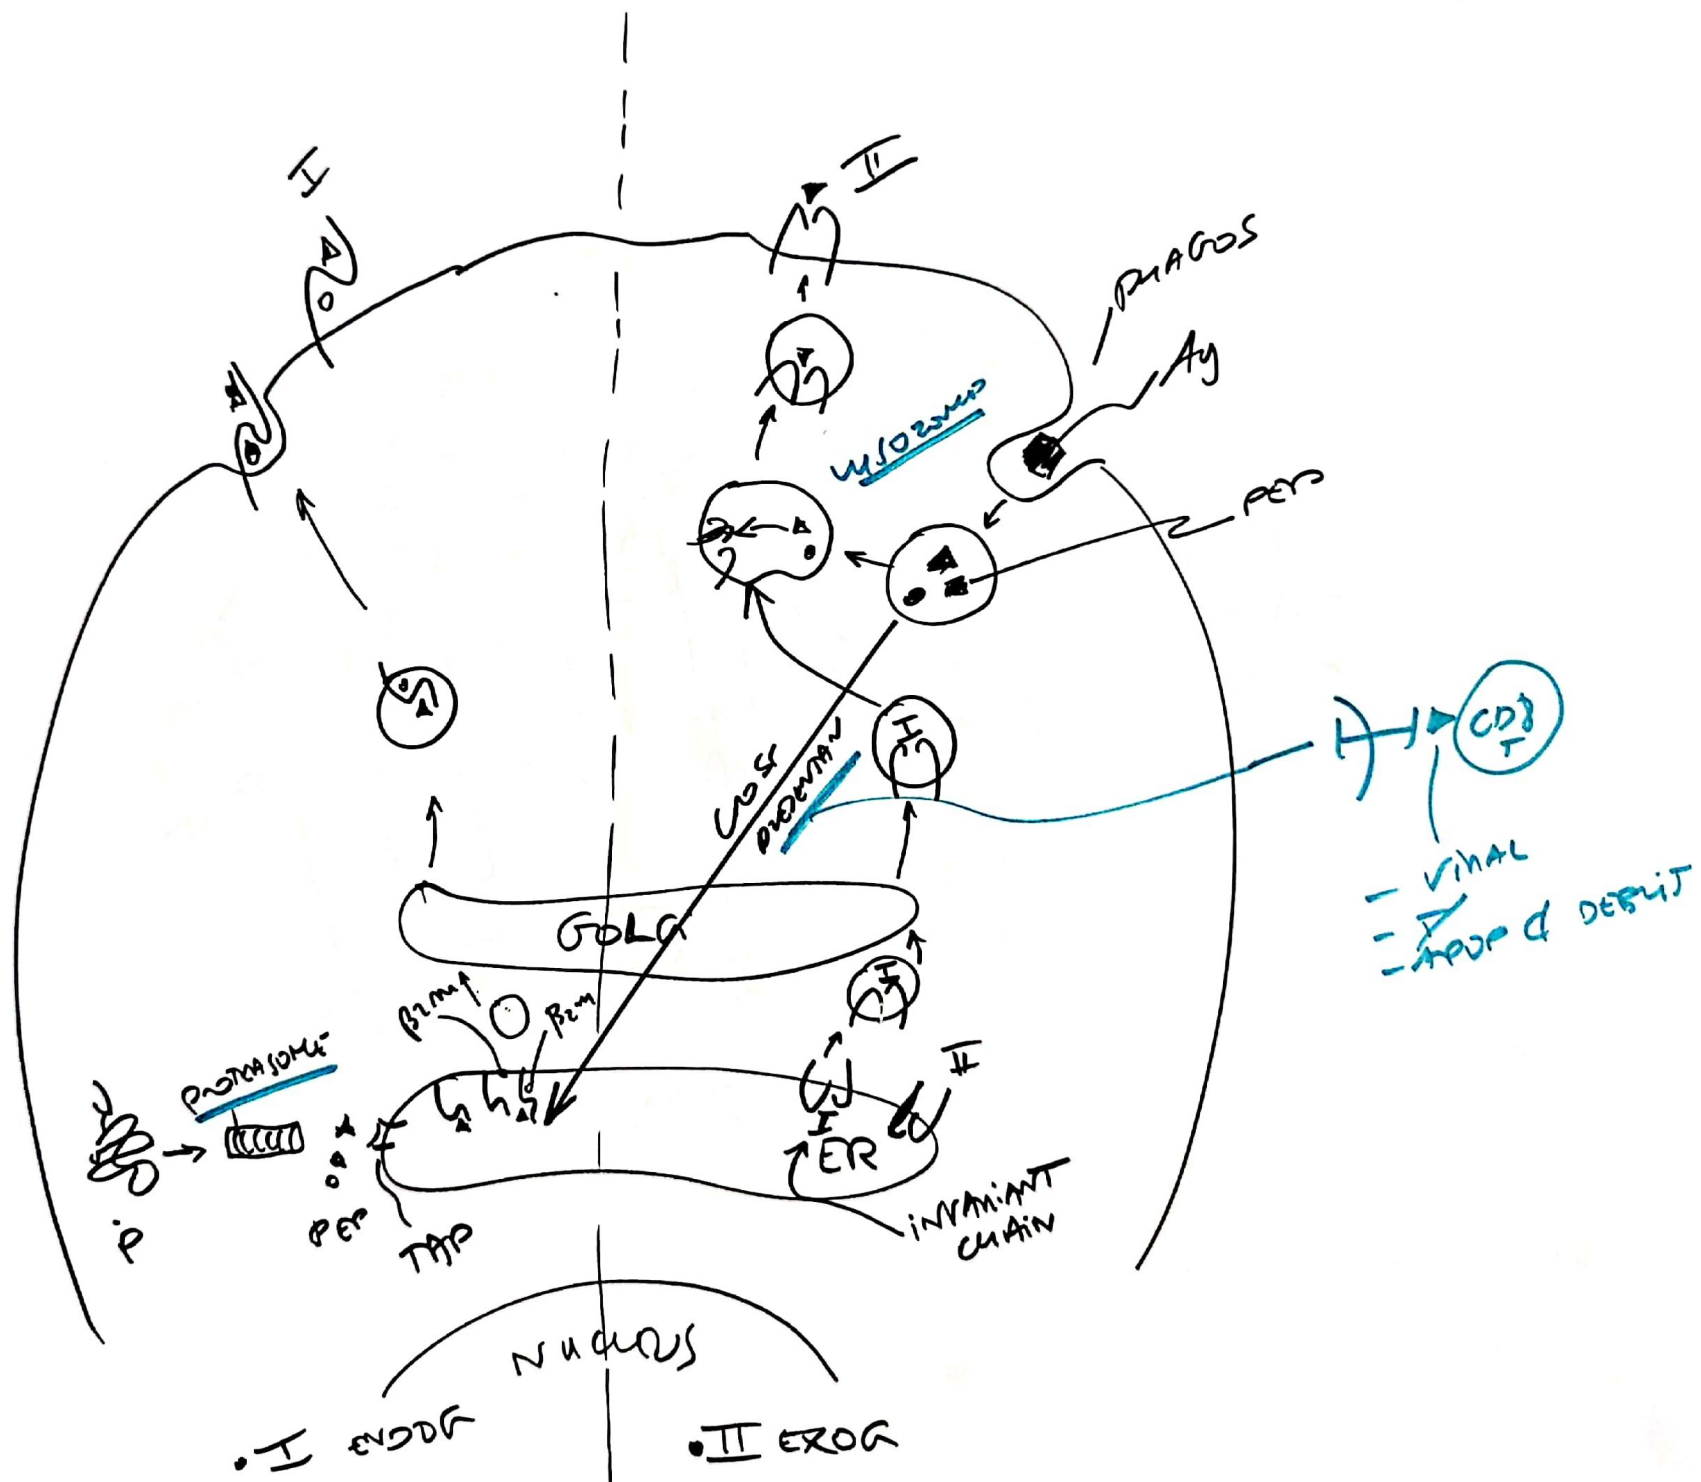 I
II
PHAGOS
Ag
LYSOZOMES
PEP
I
CROSS
PRESENTAN
CD8
T
- VIRAL
-
- APOP CȻ DEBRIS
GOLG
I
β2m
β2m
II
PROTEASOME
I
ER
INVARIANT
CHAIN
P
PEP
TAP
NUCLEUS
• I ENDOG
• II EXOG